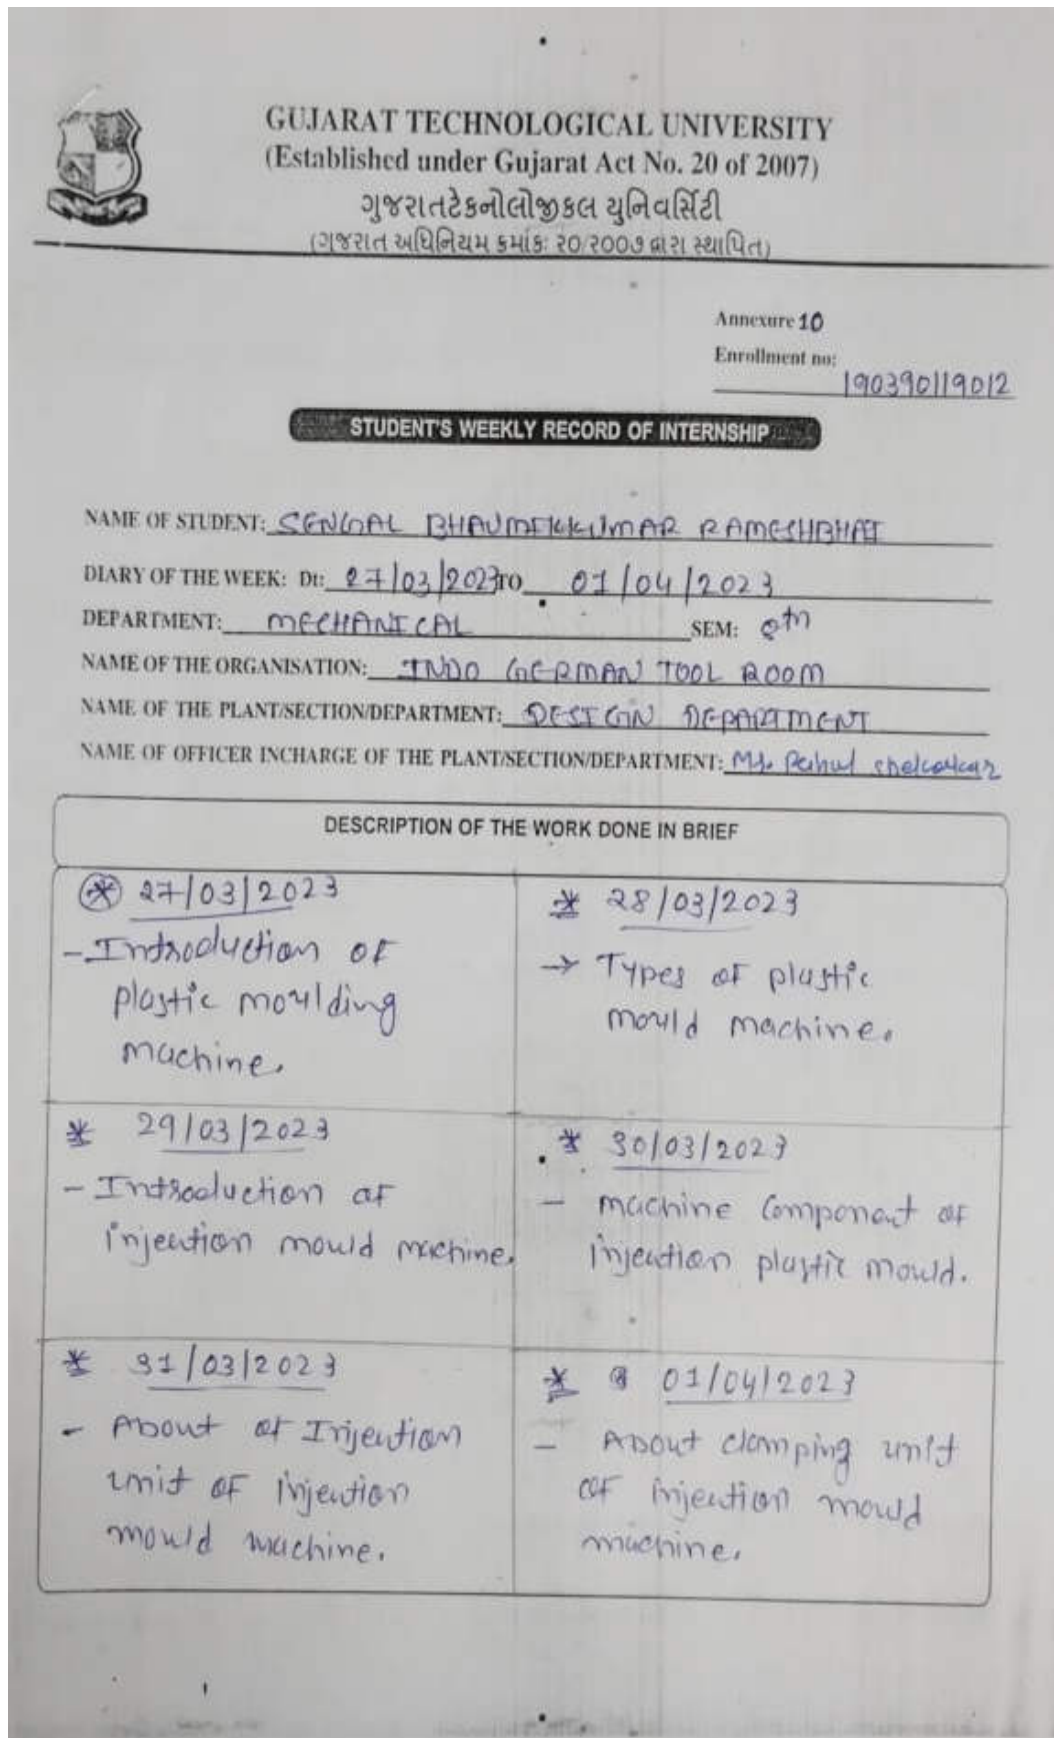 GUJARAT TECHNOLOGICAL UNIVERSITY
(Established under Gujarat Act No. 20 of 2007)
ગુજરાતટેકનોલોજીકલ યુનિવર્સિટી
(ગુજરાત અધિનિયમ ક્રમાંકઃ ૨૦/૨૦૦૭ દ્વારા સ્થાપિત)
Annexure 10
Enrollment no:
190390119012
STUDENT'S WEEKLY RECORD OF INTERNSHIP
NAME OF STUDENT: SENGAL BHAUMIKKUMAR RAMESHBHAI
DIARY OF THE WEEK: Dt: 27/03/2023 TO 01/04/2023
DEPARTMENT: MECHANICAL SEM: 8th
NAME OF THE ORGANISATION: INDO GERMAN TOOL ROOM
NAME OF THE PLANT/SECTION/DEPARTMENT: DESIGN DEPARTMENT
NAME OF OFFICER INCHARGE OF THE PLANT/SECTION/DEPARTMENT:
DESCRIPTION OF THE WORK DONE IN BRIEF
* 27/03/2023
- Introduction of
plastic moulding
machine.
* 28/03/2023
→ Types of plastic
mould machine.
* 29/03/2023
- Introduction of
injection mould machine.
* 30/03/2023
- machine component of
injection plastic mould.
* 31/03/2023
- About of Injection
unit of injection
mould machine.
* 01/04/2023
- About clamping unit
of injection mould
machine.